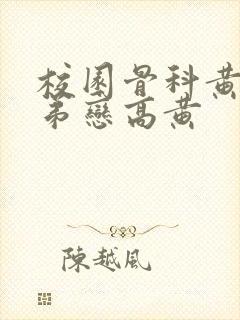 校園骨科黃
弟戀高黃
陳越風